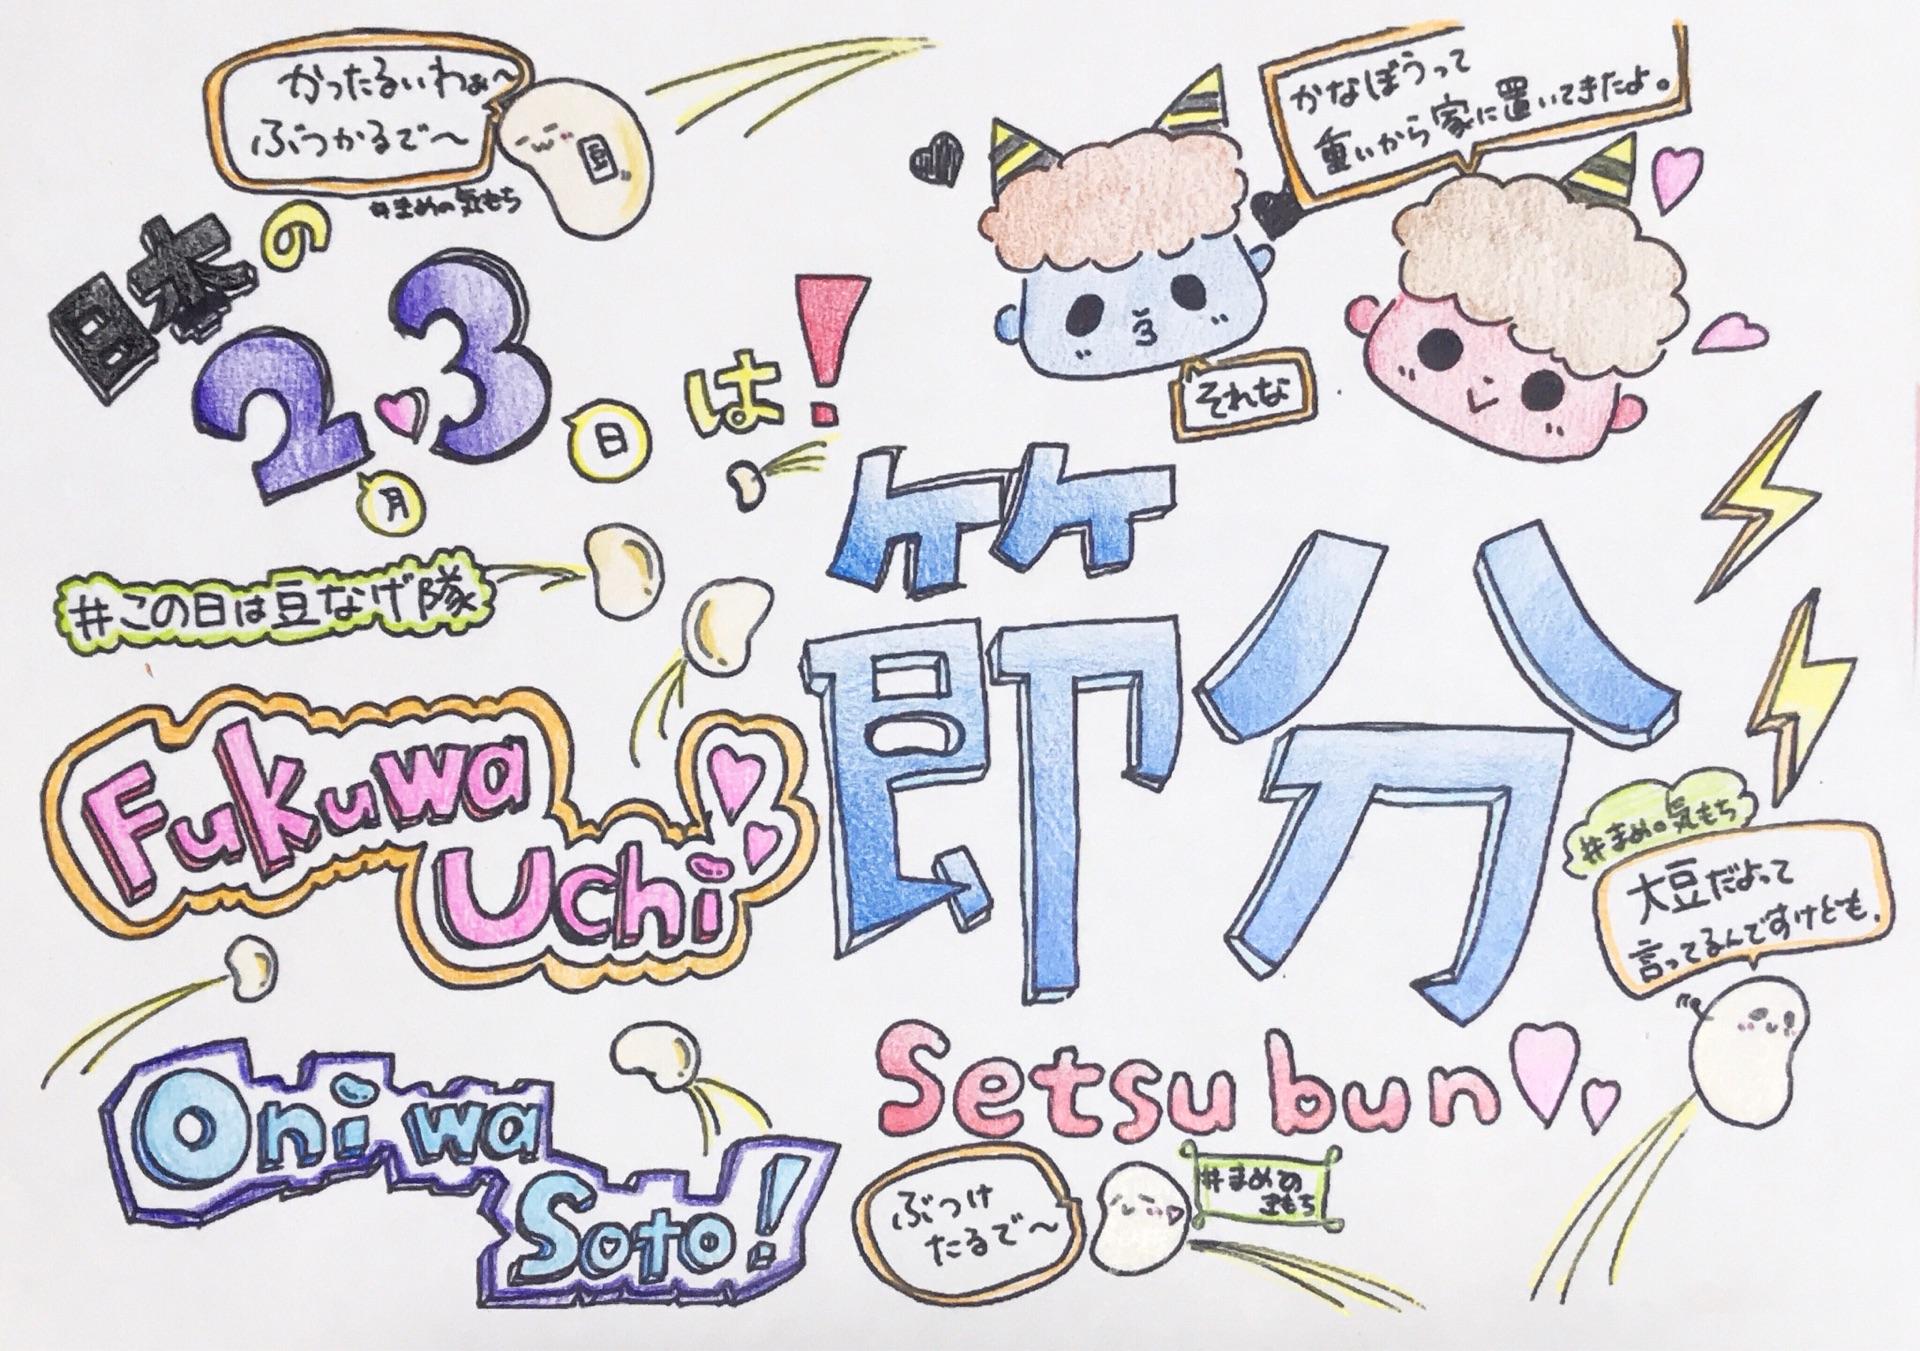 かったるいわぁ〜
ぶつかるで〜
豆
#まめの気もち
かなぼうって
重いから家に置いてきたよ。
それな
日本の
2月3日は!
#この日は豆なげ隊
節分
Fukuwa
Uchi
Oni wa
Soto!
Setsubun
#まめの気もち
大豆だよって
言ってるんですけども。
ぶつけ
たるで〜
#まめの
きもち